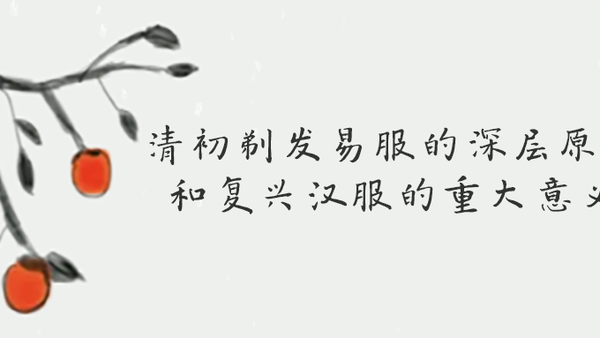 清初剃发易服的深层原
和复兴汉服的重大意